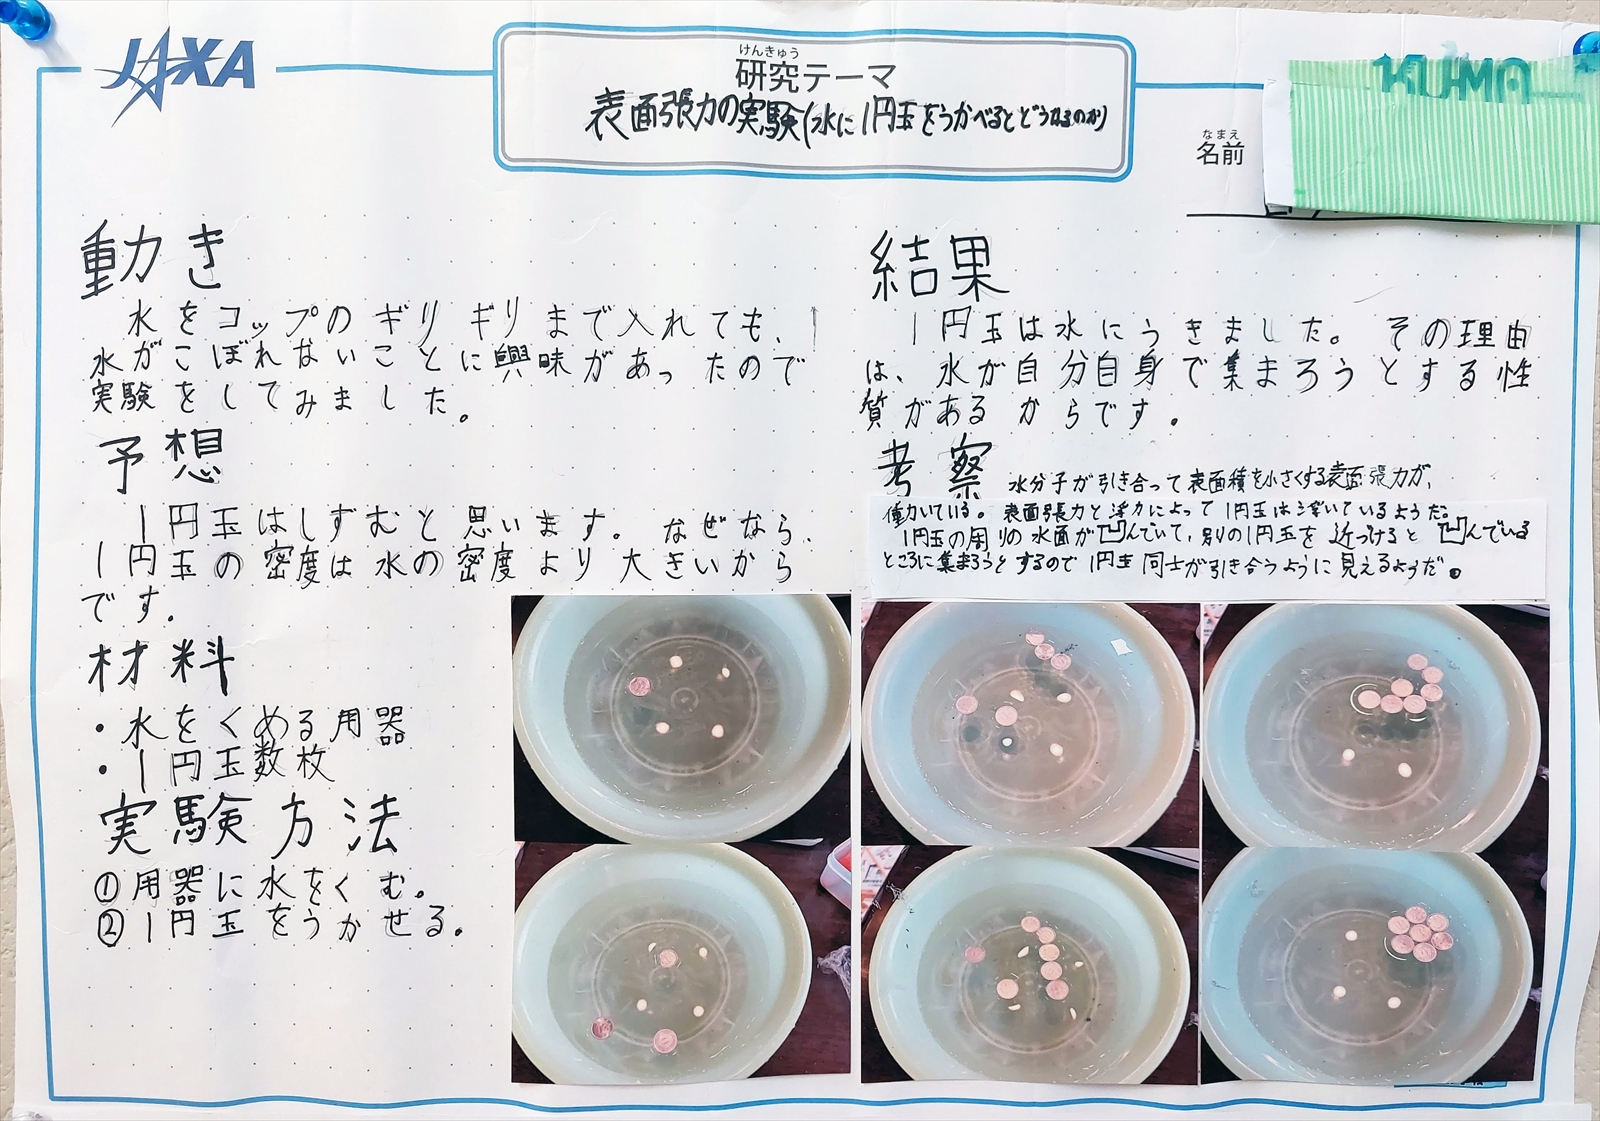 JAXA
けんきゅう
研究テーマ
表面張力の実験(水に1円玉をうかべるとどうなるのか)
KU-MA
なまえ
名前
動き
水をコップのギリギリまで入れても、
水がこぼれないことに興味があったので
実験をしてみました。
予想
1円玉はしずむと思います。なぜなら、
1円玉の密度は水の密度より大きいから
です。
材料
・水をくめる用器
・1円玉数枚
実験方法
①用器に水をくむ。
②1円玉をうかせる。
結果
1円玉は水にうきました。その理由
は、水が自分自身で集まろうとする性
質があるからです。
考察 水分子が引き合って表面積を小さくする表面張力が、
働いている。表面張力と浮力によって1円玉は浮いているようだ。
1円玉の周りの水面が凹んでいて、別の1円玉を近づけると凹んでいる
ところに集まろうとするので1円玉同士が引き合うように見えるようだ。